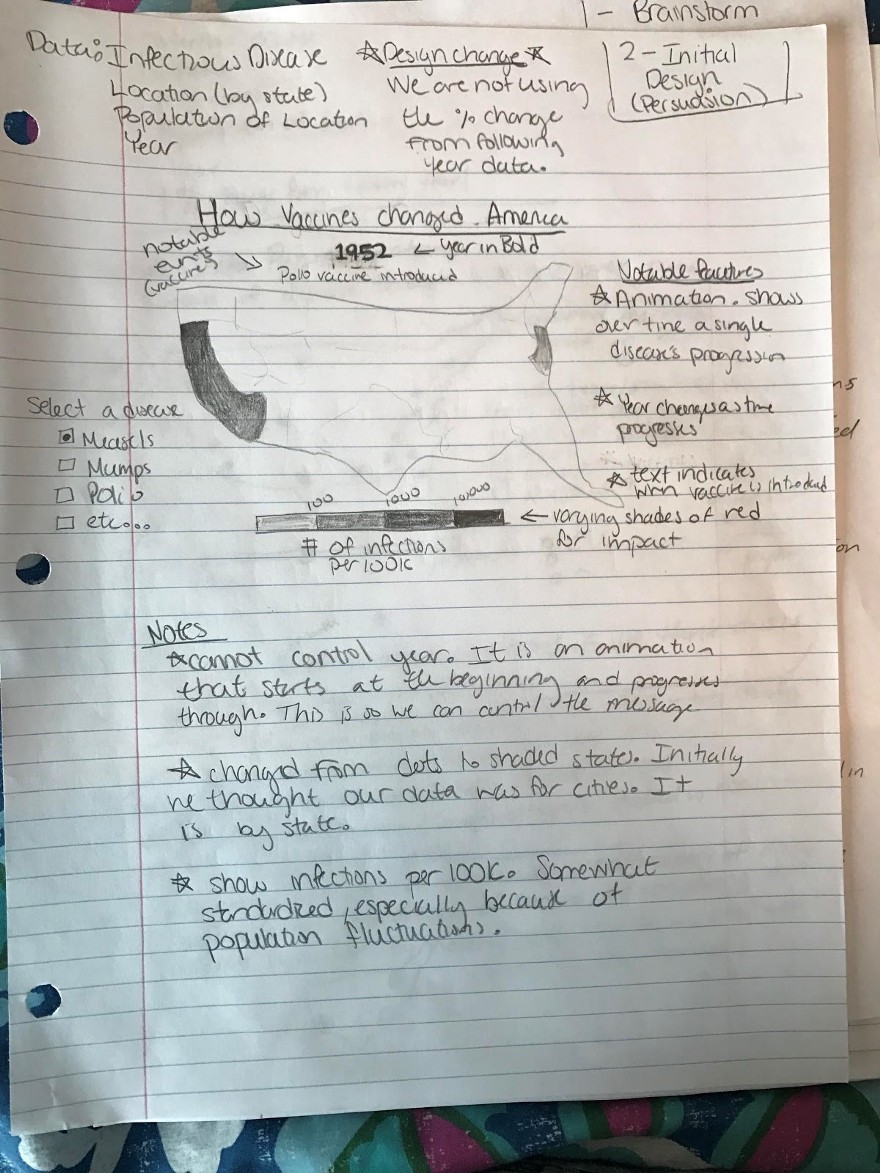 1 - Brainstorm
Data: Infectious Disease
Location (by state)
Population of Location
Year
☆Design change☆
We are not using
the % change
from following
year data.
2 - Initial
Design
(Persuasion)
How Vaccines changed America
notable
(vaccines)
1952 ← year in Bold
Polio vaccine introduced
Notable features
☆ Animation. shows
over time a single
disease's progression
☆ Year changes as time
progresses
☆ text indicates
when vaccine is introduced
Select a disease
Measels
Mumps
Polio
etc...
100 1000 10,000
# of infections
per 100K
← varying shades of red
for impact
Notes
☆ cannot control year. It is an animation
that starts at the beginning and progresses
through. This is so we can control the message
☆ changed from dots to shaded states. Initially
we thought our data was for cities. It
is by state.
☆ show infections per 100K. Somewhat
standardized, especially because of
population fluctuations.
ns
ed
on
in